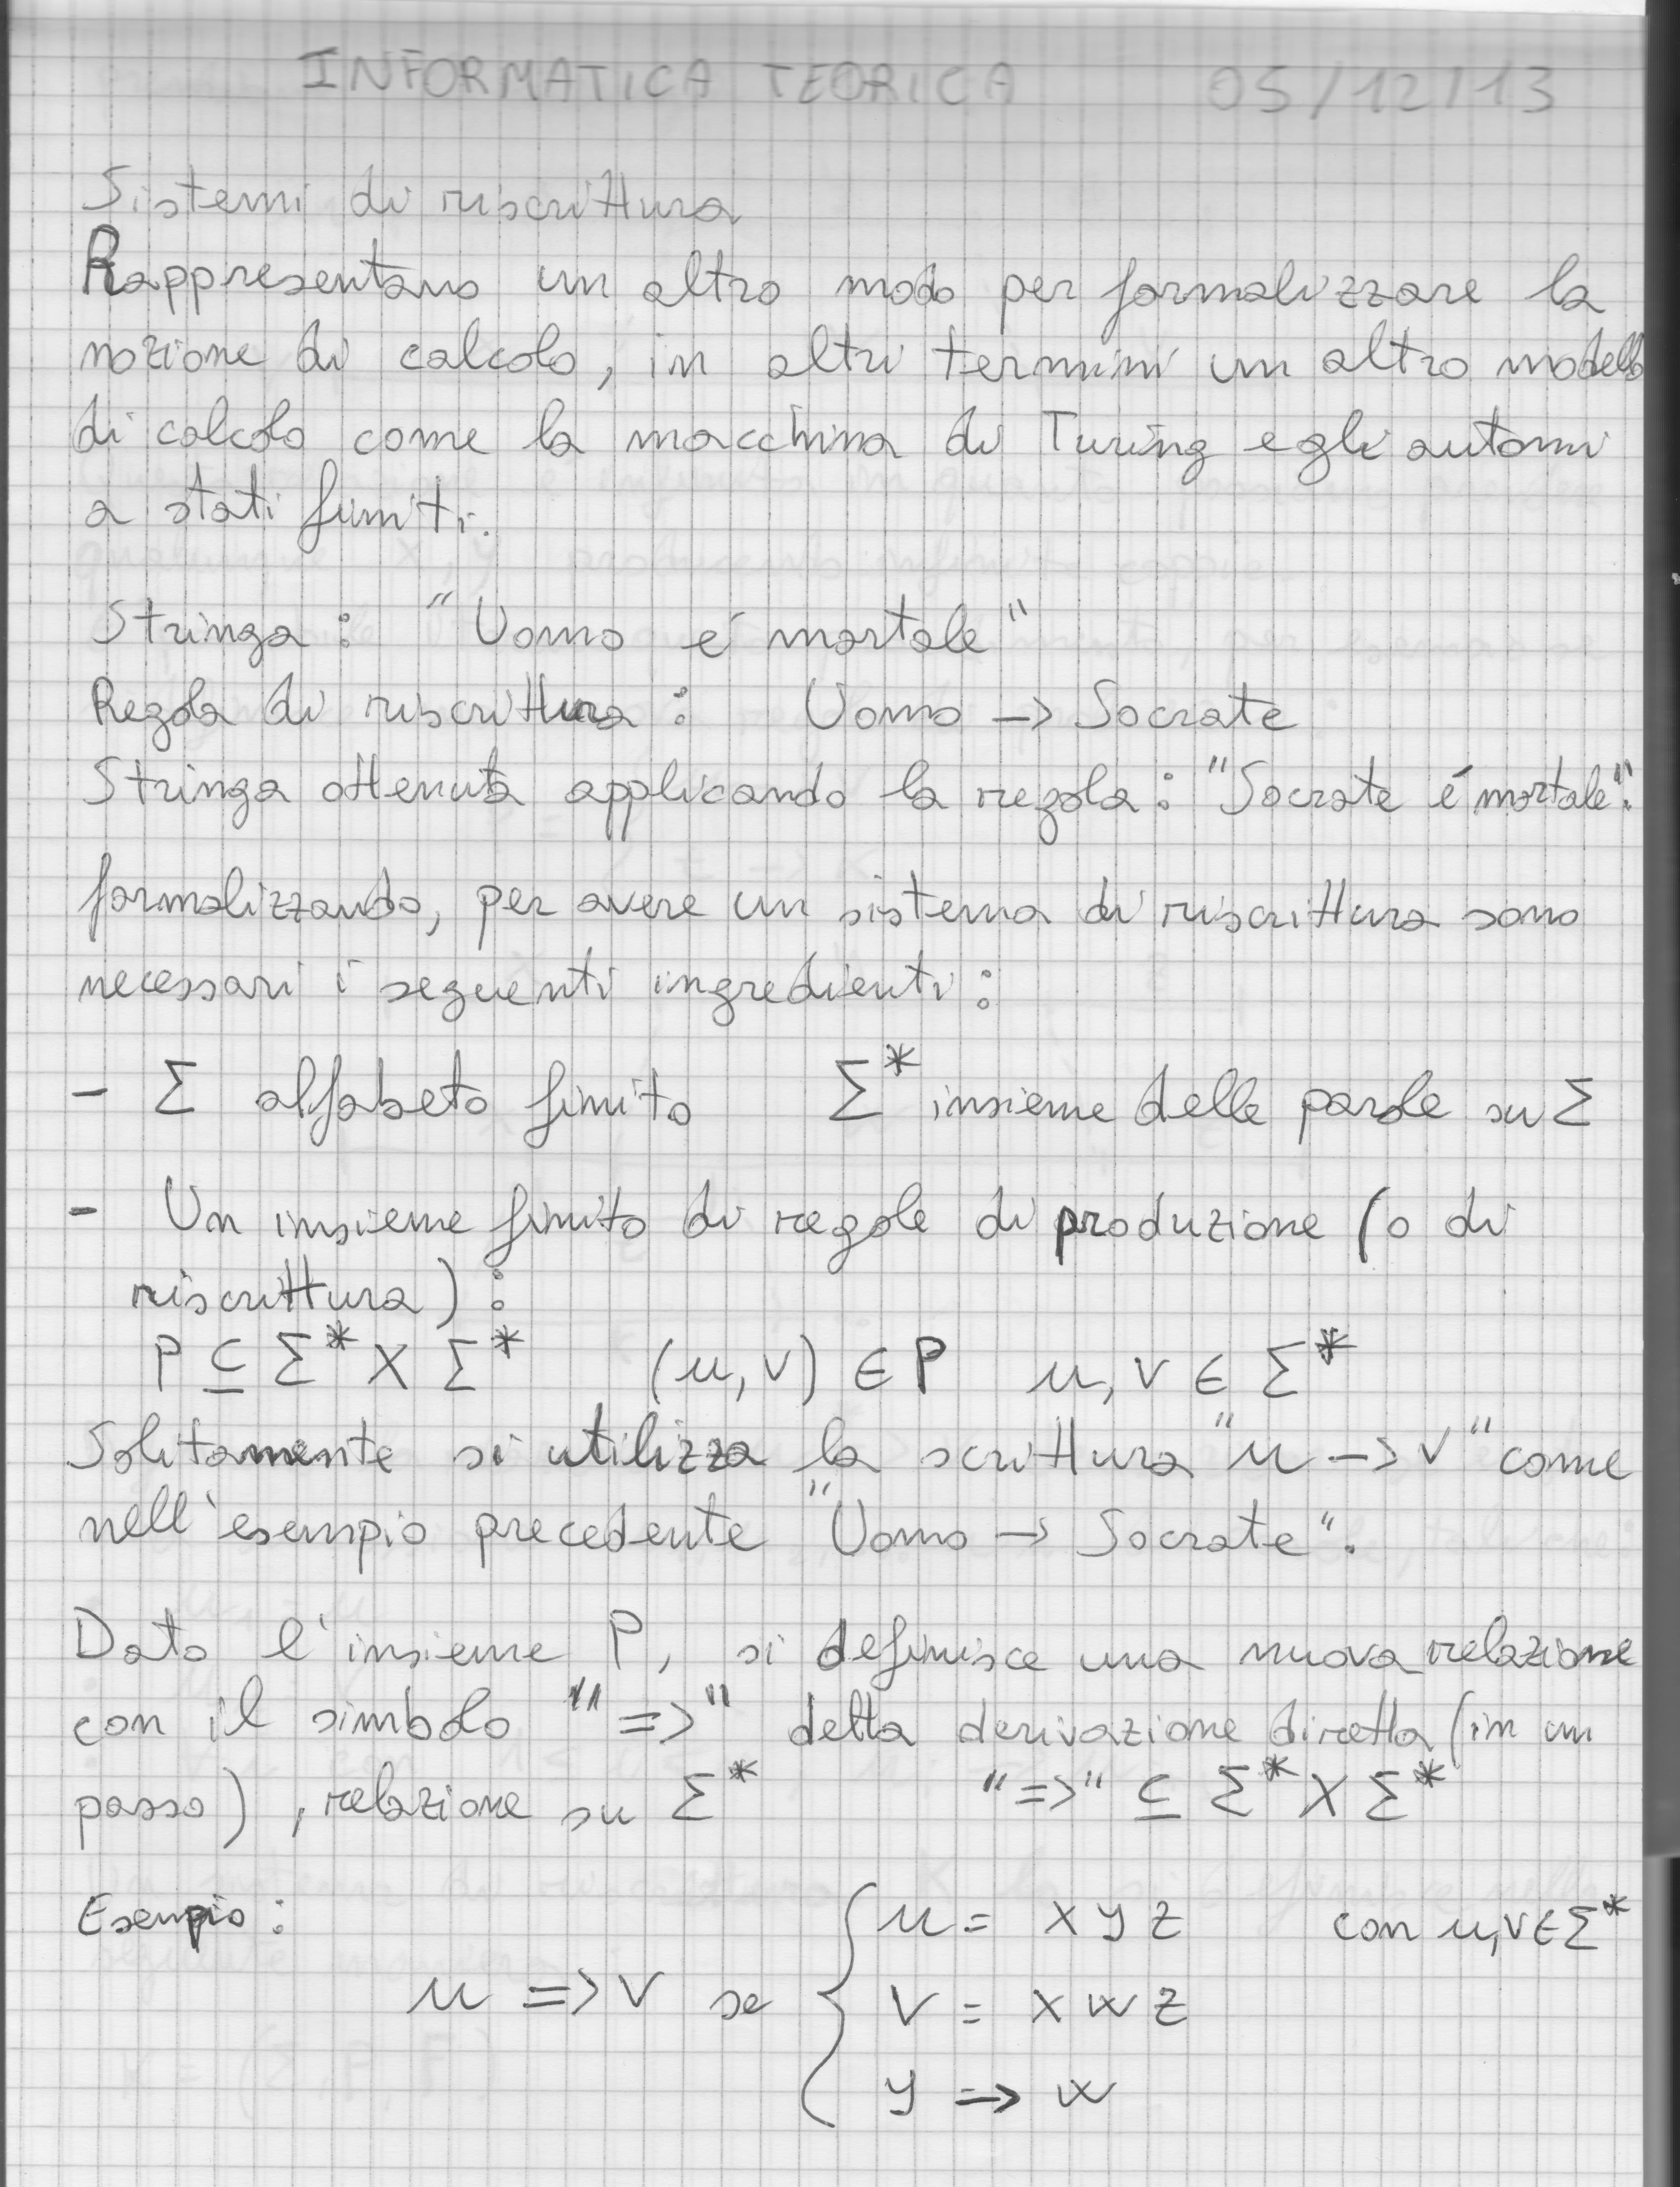 INFORMATICA TEORICA 05/12/13
Sistemi di riscrittura
Rappresentano un altro modo per formalizzare la
nozione di calcolo, in altri termini un altro modello
di calcolo come la macchina di Turing e gli automi
a stati finiti.
Stringa: "Uomo é mortale"
Regola di riscrittura: Uomo -> Socrate
Stringa ottenuta applicando la regola: "Socrate é mortale".
formalizzando, per avere un sistema di riscrittura sono
necessari i seguenti ingredienti:
- Σ alfabeto finito Σ* insieme delle parole su Σ
- Un insieme finito di regole di produzione (o di
riscrittura):
P ⊆ Σ* X Σ* (u,v) ∈ P u,v ∈ Σ*
Solitamente si utilizza la scrittura "u -> v" come
nell'esempio precedente "Uomo -> Socrate".
Dato l'insieme P, si definisce una nuova relazione
con il simbolo "=>" detta derivazione diretta (in un
passo), relazione su Σ* "=>" ⊆ Σ* X Σ*
Esempio: { u = x y z con u,v ∈ Σ*
u => v se { v = x w z
{ y => w